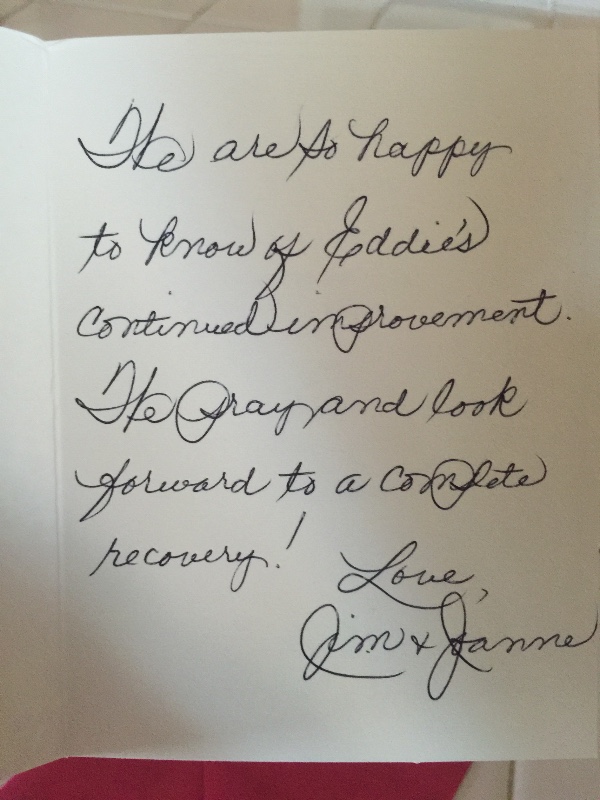 We are so happy
to know of Eddie's
continued improvement.
We pray and look
forward to a complete
recovery!
Love,
Jim & Joanne